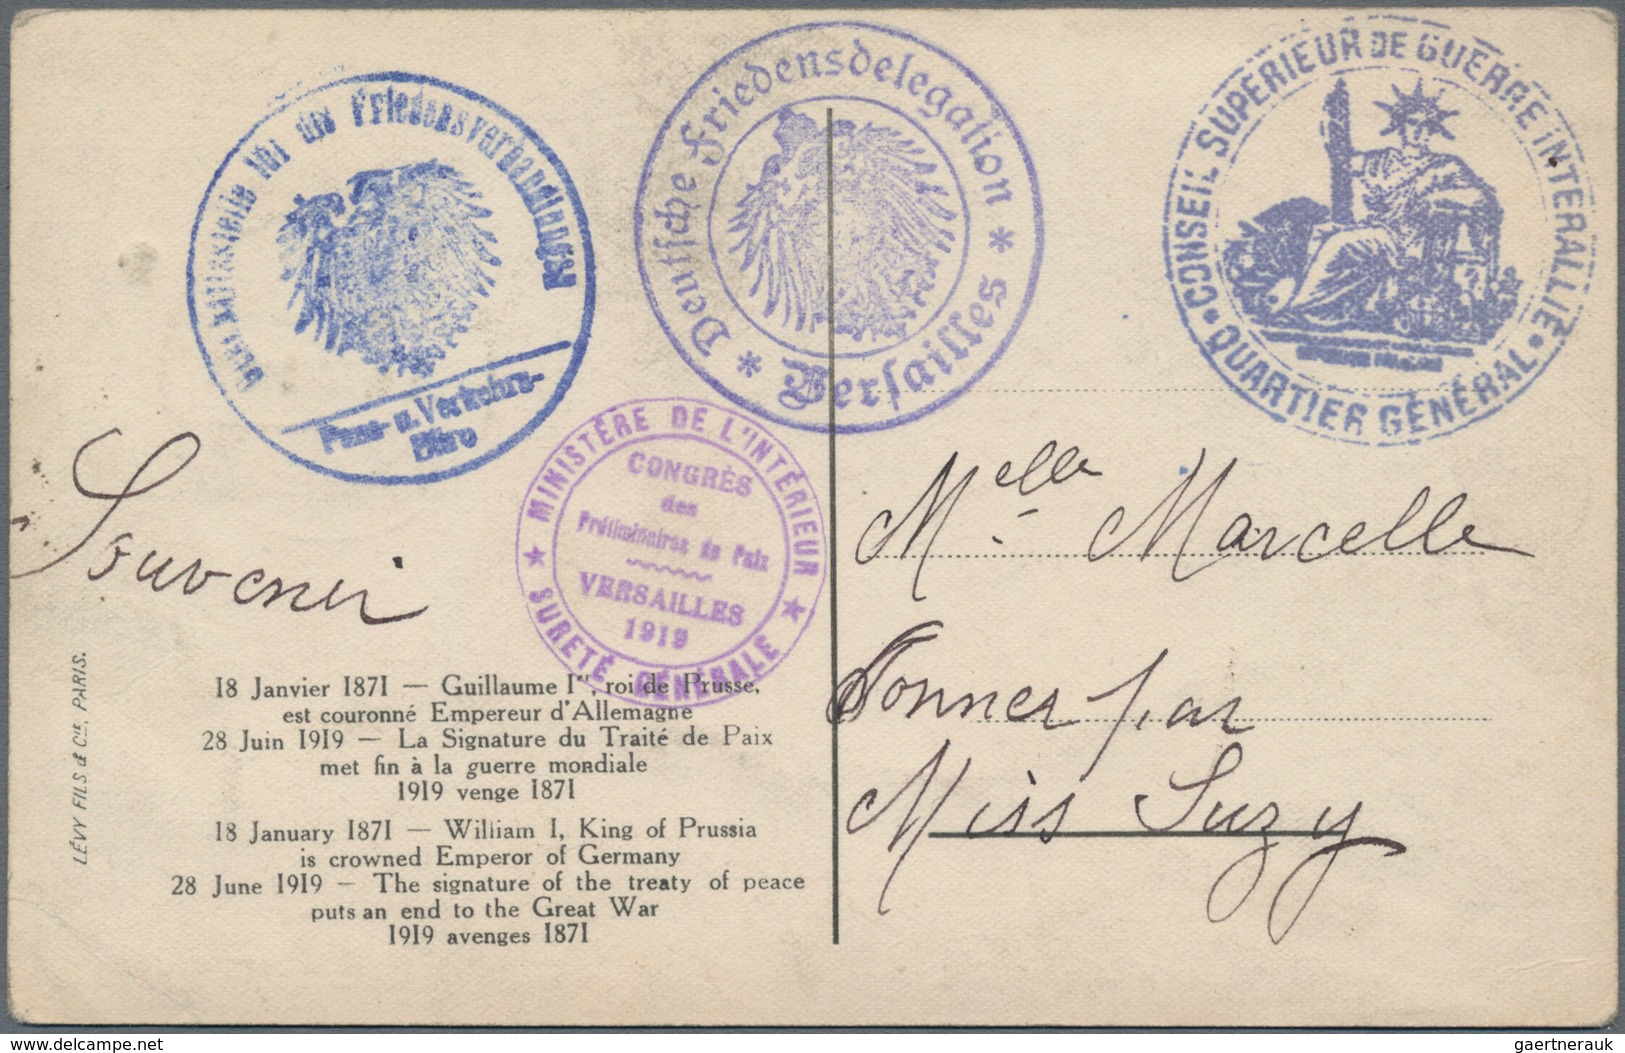 Geschäftsstelle für die Friedensverhandlungen
Pass- u. Verkehrs-
Büro
Deutsche Friedensdelegation
* Versailles *
CONSEIL SUPÉRIEUR DE GUERRE INTERALLIÉ
• QUARTIER GÉNÉRAL •
MINISTÈRE DE L'INTÉRIEUR
★ SURETÉ GÉNÉRALE ★
CONGRÈS
des
Préliminaires de Paix
VERSAILLES
1919
Souvenir
Melle Marcelle
Donner par
Miss Suzy
LÉVY FILS & Cie, PARIS.
18 Janvier 1871 — Guillaume Ier, roi de Prusse,
est couronné Empereur d'Allemagne
28 Juin 1919 — La Signature du Traité de Paix
met fin à la guerre mondiale
1919 venge 1871
18 January 1871 — William I, King of Prussia
is crowned Emperor of Germany
28 June 1919 — The signature of the treaty of peace
puts an end to the Great War
1919 avenges 1871
www.delcampe.net
gaertnerauk